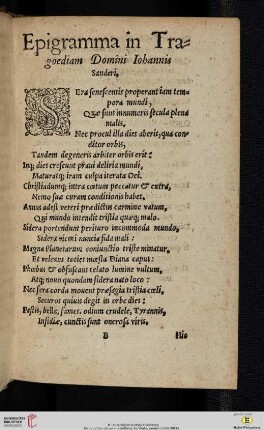 Epigramma in Tra-
goediam Domini Iohannis
Sanderi.
SEra senescentis properant iam tem-
pora mundi,
Quæ sunt innumeris secula plena
malis.
Nec procul illa dies aberit, qua con-
ditor orbis,
Tandem degeneris arbiter orbis erit:
Inq; dies crescunt praui deliria mundi,
Maturatq; iram culpa iterata Dei.
Christiadumq; intra cœtum peccatur & extra,
Nemo suæ curam conditionis habet.
Annus adest veteri prædictus carmine vatum,
Qui mundo intendit tristia quæq; malo.
Sidera portendunt perituro incommoda mundo,
Sidera nuncia sida mali:
Magna Planetarum coniunctio triste minatur,
Et velexus toties mœsta Diana caput:
Phœbus & obfuscans velato lumine vultum,
Atq; nouo quondam sidera nato loco:
Nec sera corda mouent præsagia tristia cœli,
Securus quiuis degit in orbe dies:
Pestis, bella, fames, odium crudele, Tyrannis,
Insidiæ, cunctis sunt onerosa viris.
B
Hic
UNIVERSITÄTS
BIBLIOTHEK
HEIDELBERG